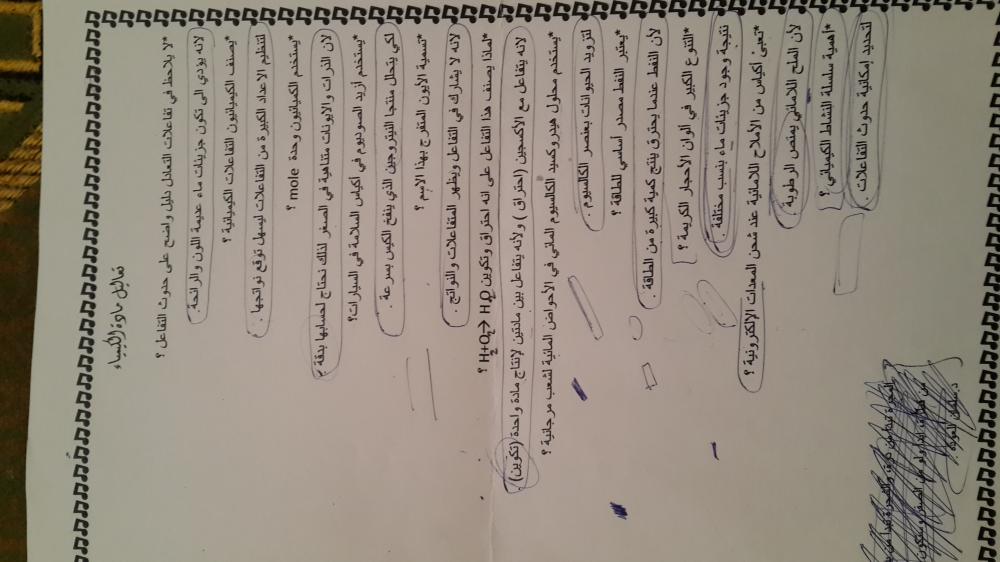 تعاليل مادة الكيمياء
*لا يلاحظ في تفاعلات التعادل دليل واضح على حدوث التفاعل ؟
لانه يؤدي الى تكون جزيئات ماء عديمة اللون والرائحة.
*يصنف الكيميائيون التفاعلات الكيميائية ؟
لتنظيم الاعداد الكبيرة من التفاعلات ليسهل توقع نواتجها .
*يستخدم الكميائيون وحدة mole ؟
لان الذرات والايونات متناهية في الصغر لذلك نحتاج لحسابها بدقة .
*يستخدم ازيد الصوديوم في اكياس السلامة في السيارات؟
لكي يتحلل منتجا النيتروجين الذي ينفخ الكيس بسرعة .
*تسمية الايون المتفرج بهذا الاسم ؟
لانه لا يشارك في التفاعل ويظهر المتفاعلات والنواتج .
*لماذا يصنف هذا التفاعل على انه احتراق وتكوين H2+O2→ H2O ؟
لانه يتفاعل مع الأكسجين (احتراق ) ولأنه يتفاعل بين مادتين لإنتاج مادة واحدة (تكوين) .
*يستخدم محلول هيدروكسيد الكالسيوم المائي في الأحواض المائية لشعب مرجانية ؟
لتزويد الحيوانات بعنصر الكالسيوم .
*يعتبر النفط مصدر أساسي للطاقة ؟
لأن النفط عندما يحترق ينتج كمية كبيرة من الطاقة .
*التنوع الكبير في ألوان الأحجار الكريمة ؟
نتيجة وجود جزيئات ماء بنسب مختلفة .
*تعبئ أكياس من الأملاح اللامائية عند شحن المعدات الإلكترونية ؟
لأن الملح اللامائي يمتص الرطوبة .
*اهمية سلسلة النشاط الكيميائي ؟
لتحديد إمكانية حدوث التفاعلات .